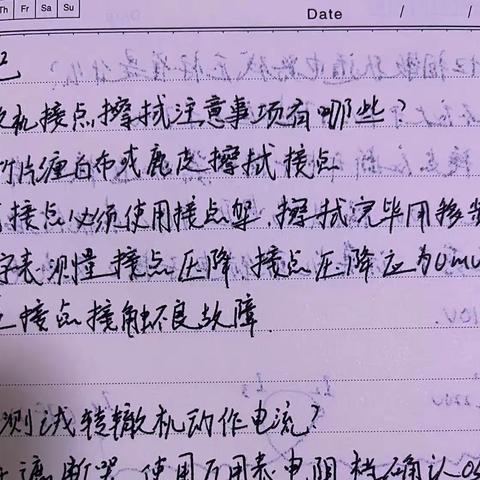 Th Fr Sa Su
Date / /
记
机接点擦拭注意事项有哪些?
竹片缠白布或鹿皮擦拭接点
接点必须使用接点架,擦拭完毕用移
字表测量接点压降,接点压降应为0mV
接点接触不良故障.
测试转辙机动作电流?
遮断器,使用万用表电阻档确认05